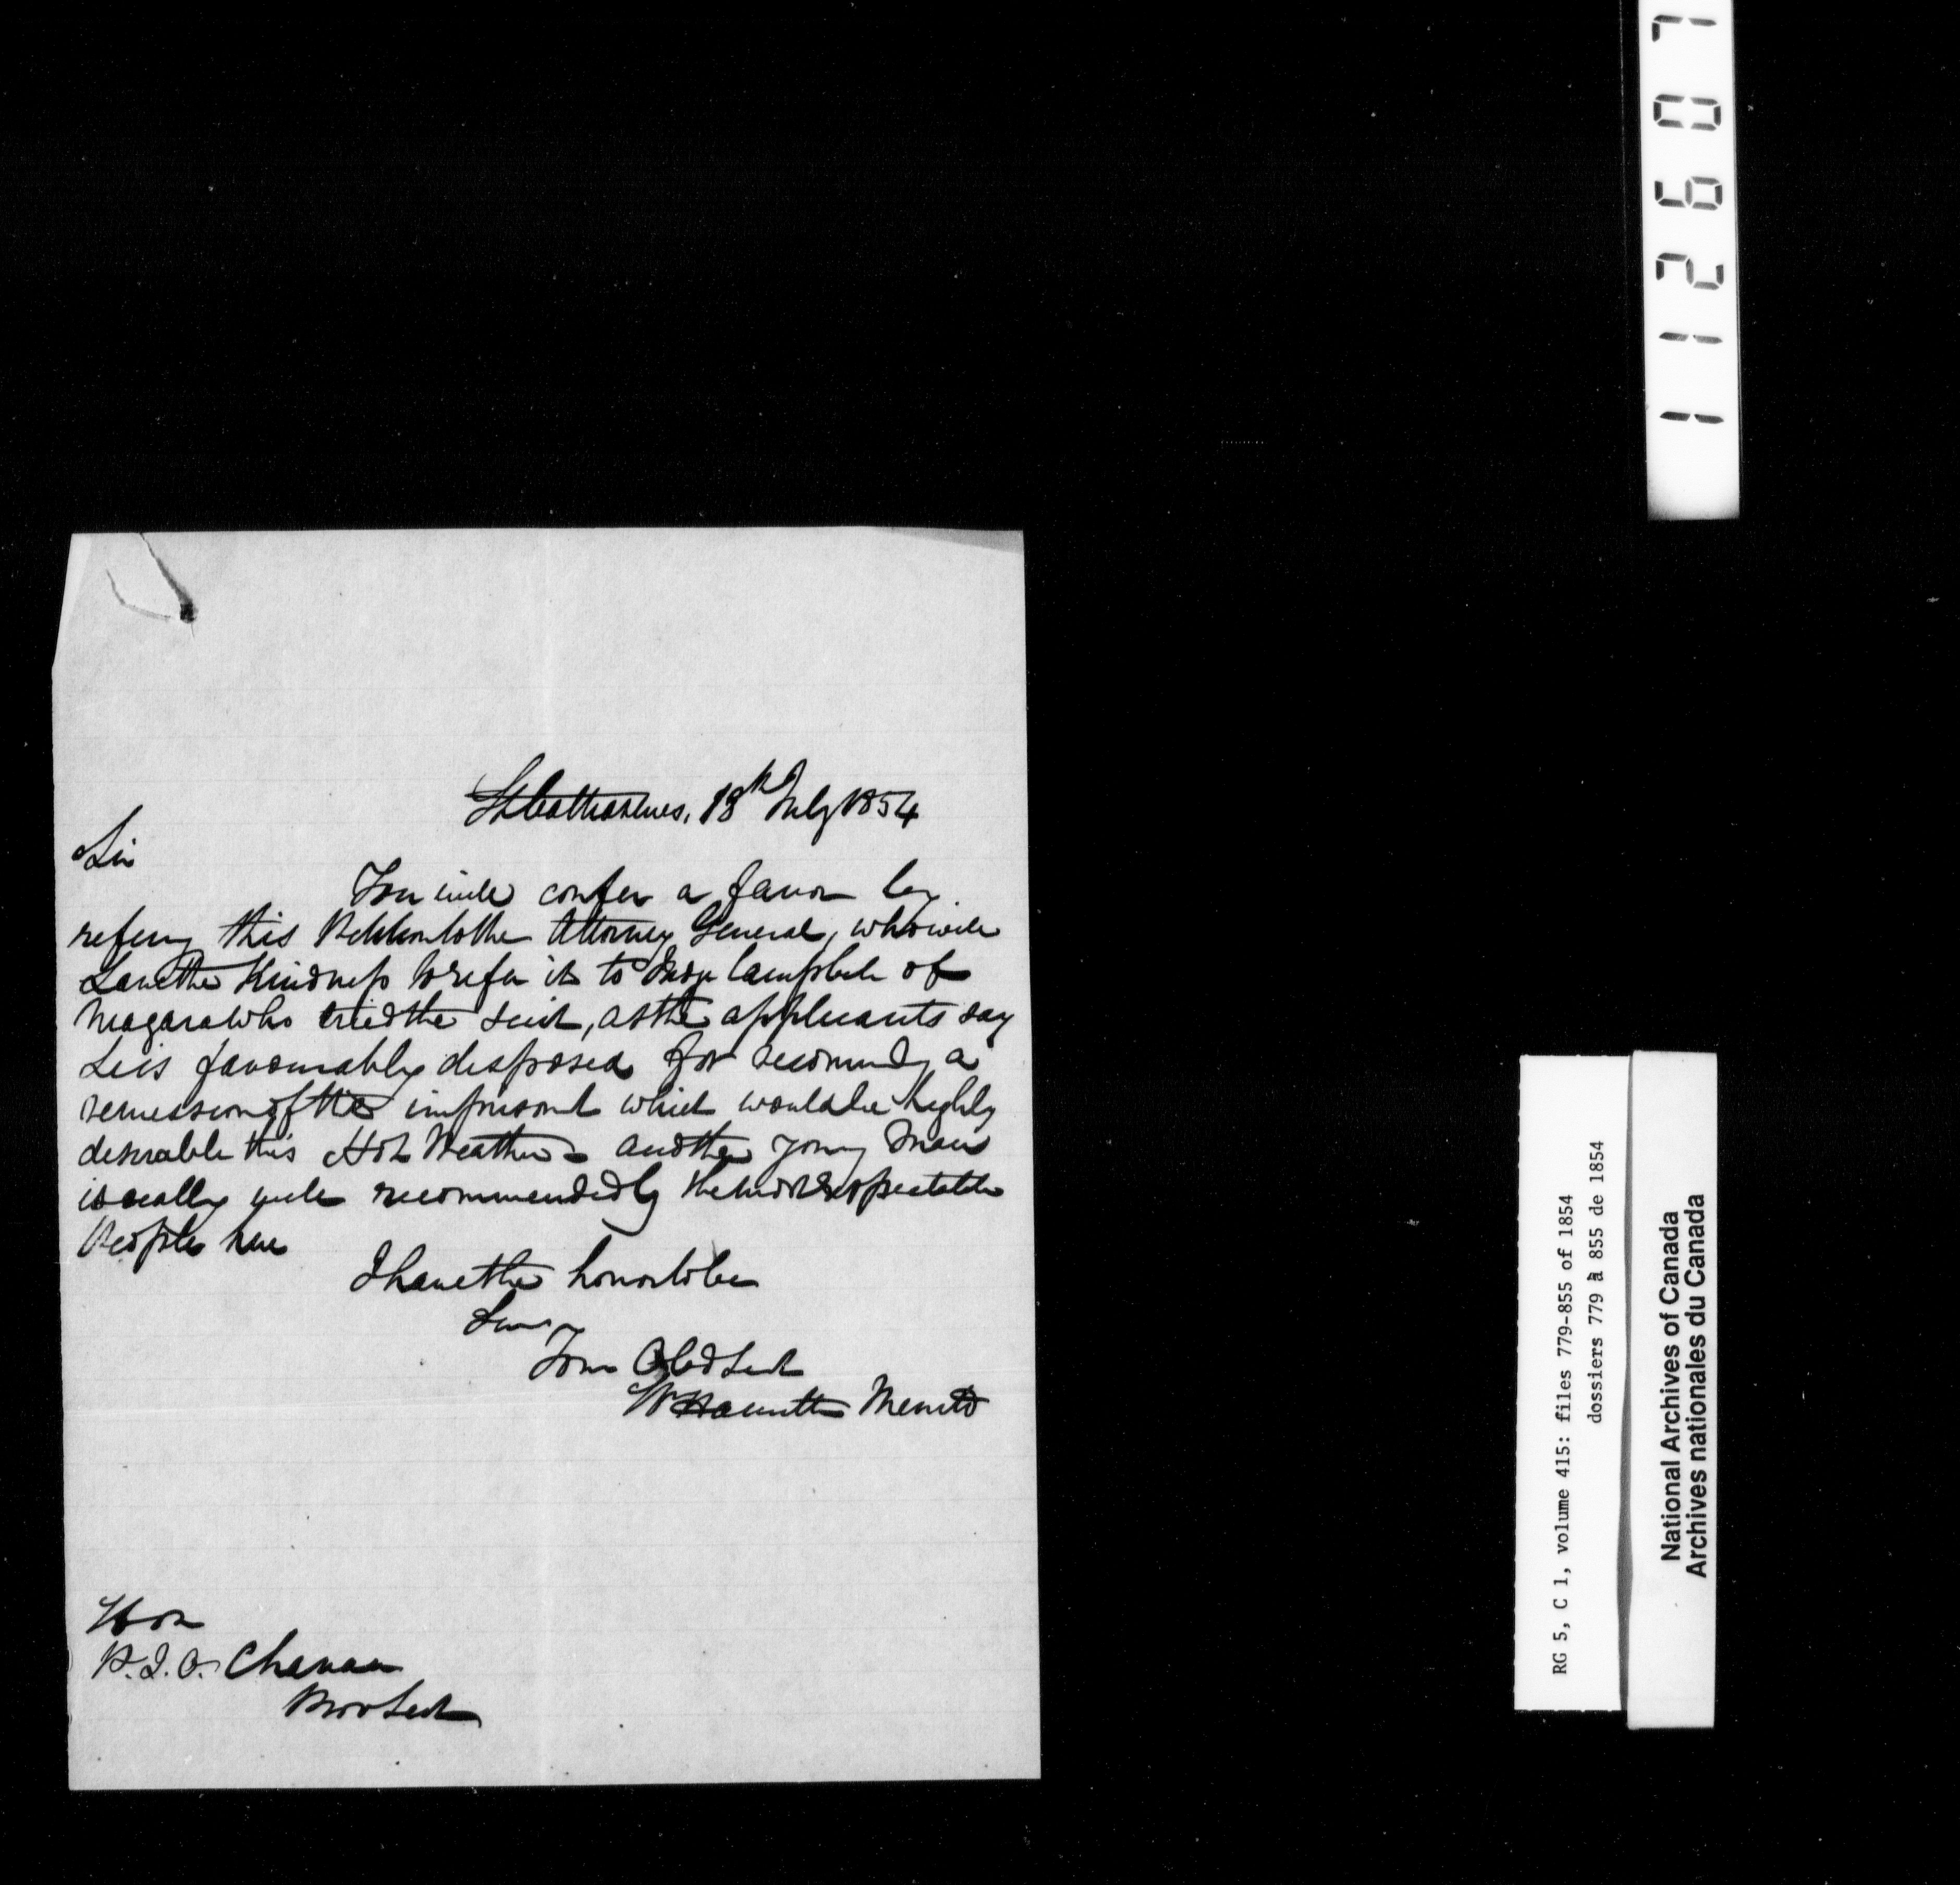 St Catharines, 18th July 1854
Sir
You will confer a favor by
refering this Petition to the Attorney General, who will
have the kindness to refer it to Judge Campbell of
Niagara who tried the suit, as the applicants say
he is favourably disposed for recomendg a
remission of the imprisont which would be highly
desirable this Hot Weather and the young man
is really well recommended by the most respectable
People here
I have the honor to be
Sir
Your Obd Sert
W Hamilton Merritt
Hon
P. J. O. Chauveau
Prov Sect
112607
RG 5, C 1, volume 415: files 779-855 of 1854
dossiers 779 à 855 de 1854
National Archives of Canada
Archives nationales du Canada